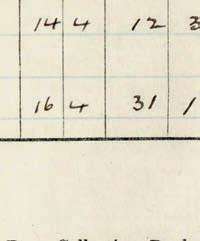 14 4 12 3
16 4 31 1